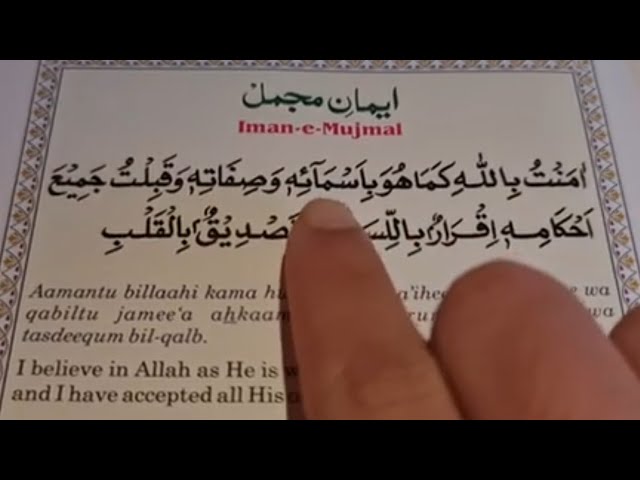 ایمانِ مجمل
Iman-e-Mujmal
اٰمَنْتُ بِاللّٰهِ كَمَا هُوَ بِاَسْمَآئِهٖ وَصِفَاتِهٖ وَقَبِلْتُ جَمِيْعَ
اَحْكَامِهٖ اِقْرَارٌۢ بِاللِّسَ صْدِيْقٌۢ بِالْقَلْبِ
Aamantu billaahi kama hu a'ihee e wa
qabiltu jamee'a ahkaam wa
tasdeequm bil-qalb.
I believe in Allah as He is
and I have accepted all His